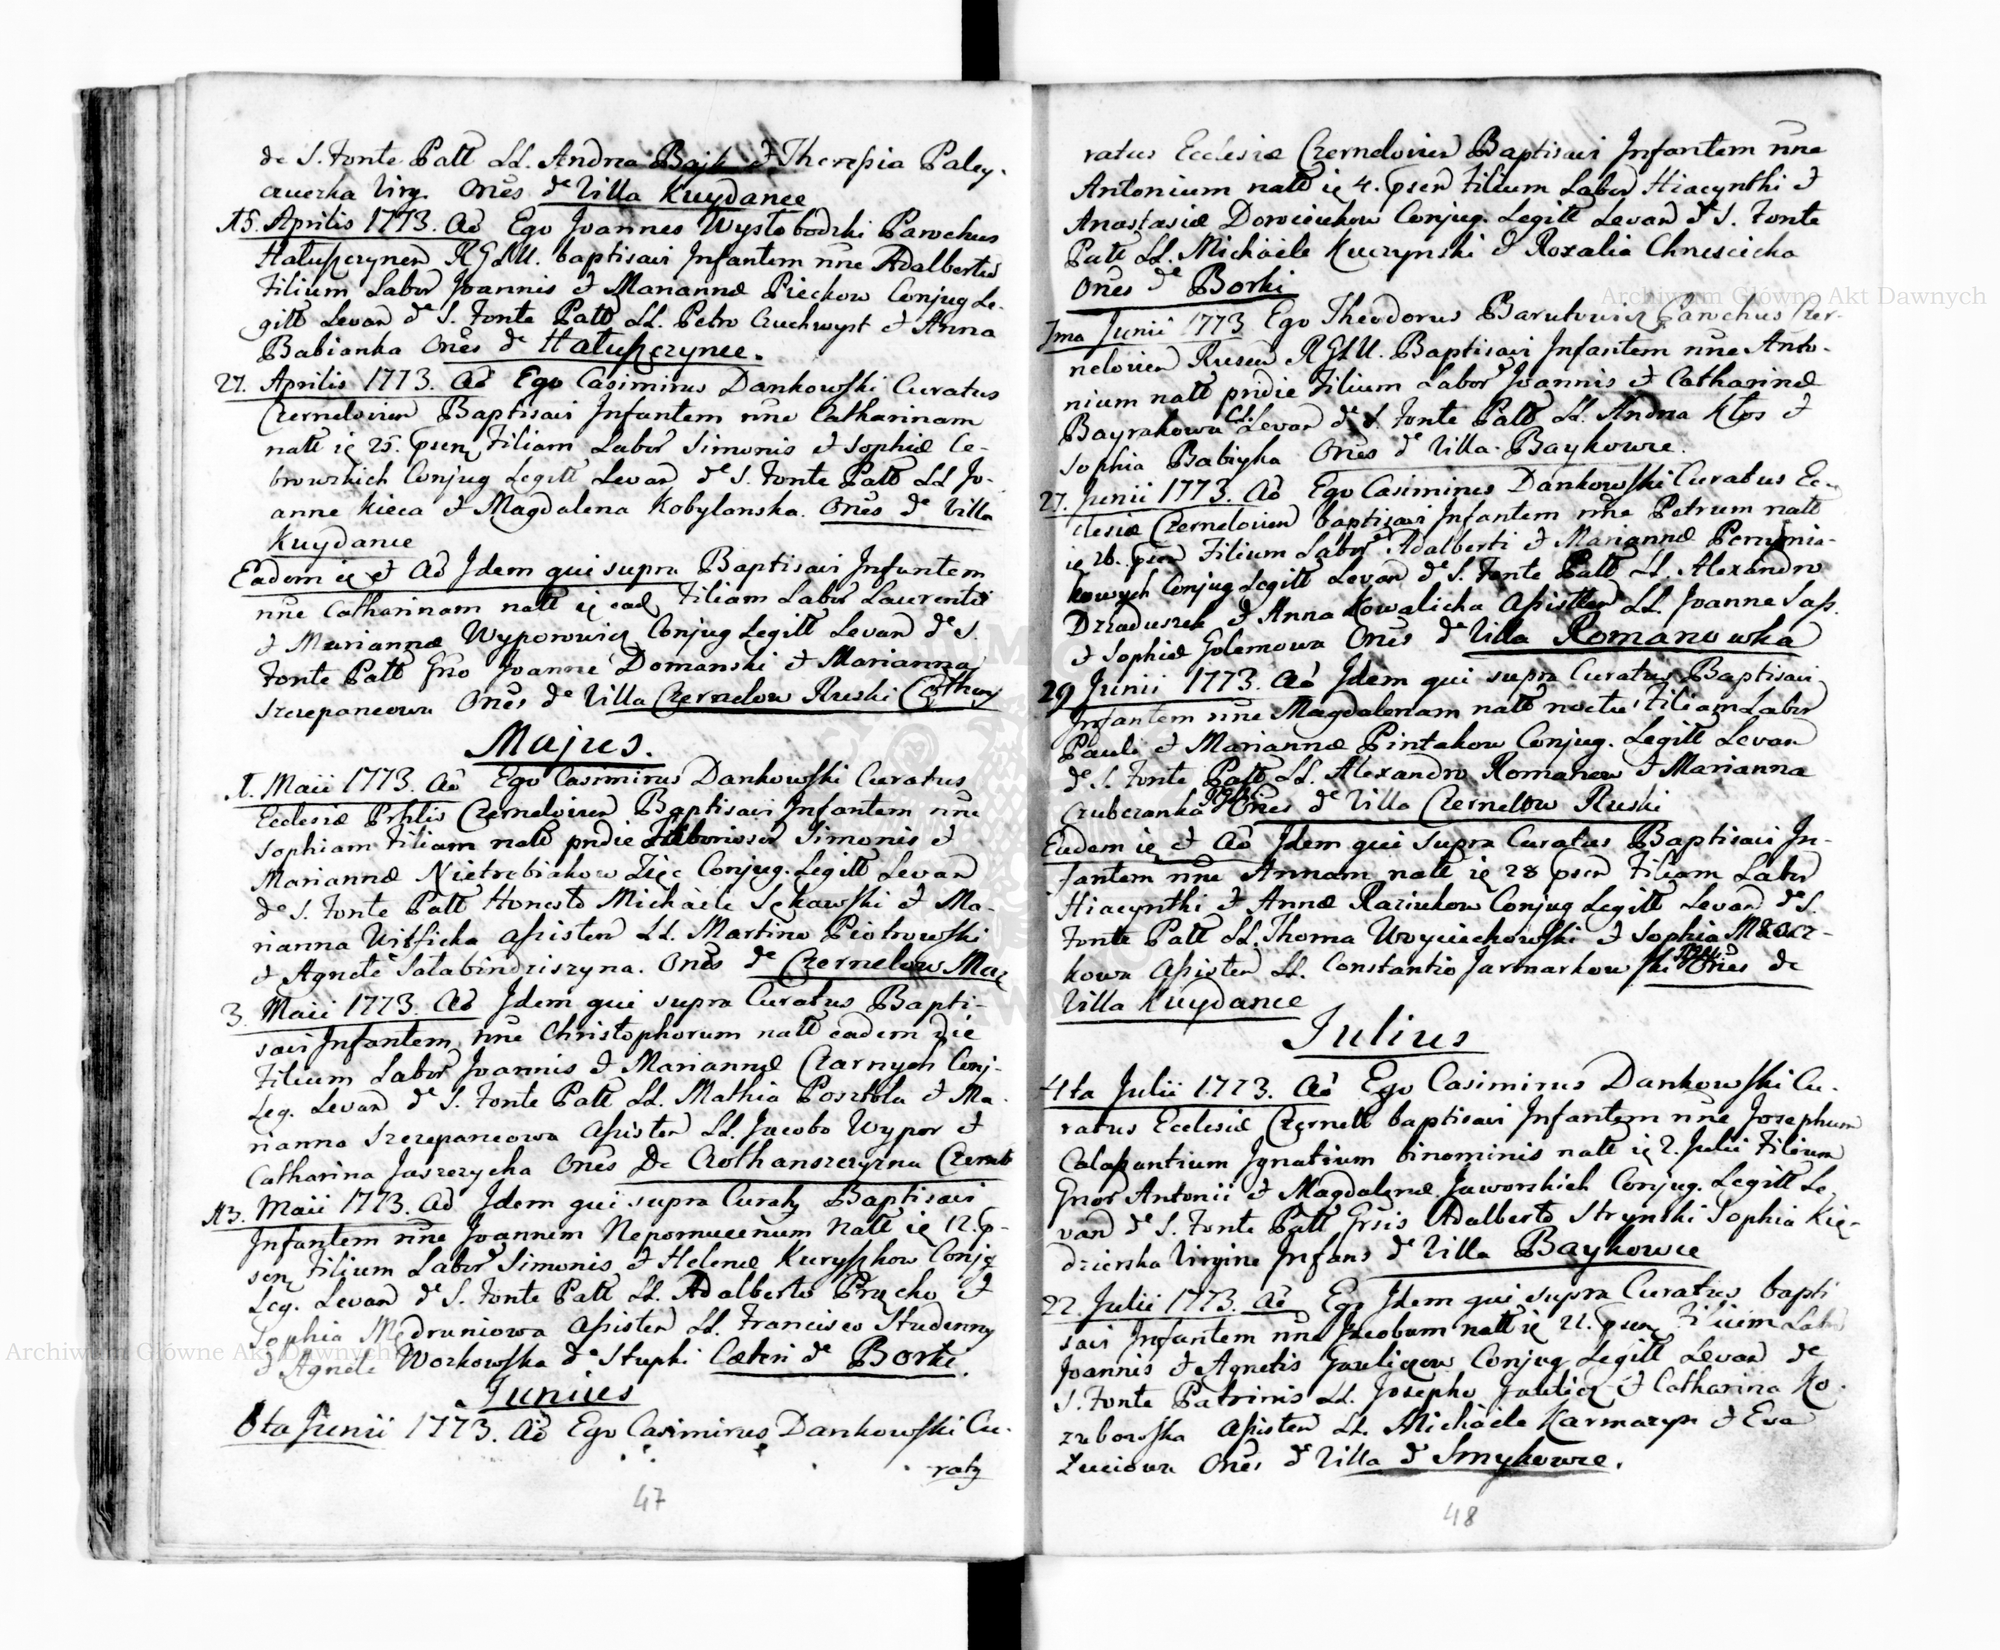 de S. Fonte Patt LL. Andrea Bajk et Theresia Paley-
czuczka Virg. Omes de Villa Kuydance
15. Aprilis 1773. Ao Ego Joannes Wystobodzki Parochus
Hatuszczynen R.G.U. baptisavi Infantem nne Adalbertu
Filium Labor Joannis et Mariannæ Pieckow Conjug Le-
gitt Levan de S. Fonte Patt LL. Petro Czuchwyst et Anna
Babianka Omes de Hatuszczynce.
27. Aprilis 1773. Ao Ego Casimirus Dankowski Curatus
Czernelovien Baptisavi Infantem nne Catharinam
natt ię 25. psen Filiam Labor Simonis et Sophiæ Ce-
browskich Conjug Legitt Levan de S. Fonte Patt LL Jo-
anne Kieca et Magdalena Kobylanska. Omes de Villa
Kuydance
Eadem ię et Ao Idem qui supra Baptisavi Infantem
nne Catharinam natt ię ead Filiam Labor Laurentii
et Mariannæ Wyporowicz Conjug Legitt Levan de S.
Fonte Patt Gnso Joanne Domanski et Marianna
Szczepancowa Omes de Villa Czernelow Ruski
Majus.
1. Maii 1773. Ao Ego Casimirus Dankowski Curatus
Ecclesiæ Prhlis Czernelovien Baptisavi Infantem nne
Sophiam Filiam natt pridie Simonis et
Mariannæ Nietrebiakow Zięc Conjug. Legitt Levan
de S. Fonte Patt Honesto Michaele Sękawski et Ma-
rianna Witficka assisten LL. Martino Piotrowski
et Agnete Omes de Czernelow Maz
3. Maii 1773. Ao Idem qui supra Curatus Bapti-
savi Infantem nne Christophorum natt eadem die
Filium Labor Joannis et Mariannæ Czarnych Conj-
Leg. Levan de S. Fonte Patt LL. Mathia Posztola et Ma-
rianna Szczepancowa Assisten LL. Jacobo Wypor et
Catharina Jaszczycha Omes De Czernelo
13. Maii 1773. Ao Idem qui supra Curatg Baptisavi
Infantem nne Joannem Nepomucenum Natt ię 12. p-
senę Filium Labor Simonis et Helenæ Kuryszkow Conjg
Leg. Levan de S. Fonte Patt LL. Adalberto Prucho et
Sophia Mędruniowa Assisten LL. Francisco Studenny
et Agnete Wozkowska de Stupki Cæteri de Borki.
Junius
6ta Junii 1773. Ao Ego Casimirus Dankowski Cu-
ratg
47
ratus Ecclesiæ Czernelovien Baptisavi Infantem nne
Antonium natt ię 4. psen Filium Labor Hiacynthi et
Anastasiæ Dorociukow Conjug. Legitt Levan de S. Fonte
Patt LL. Michaele Kuczynski et Rozalia Chnescicka
Omes de Borki
7ma Junii 1773 Ego Theodorus Parochus Czer-
nelovien Rusen R.G.U. Baptisavi Infantem nne Anto-
nium natt pridie Filium Labor Joannis et Catharinæ
Bayrakowu C.L. Levan de S. Fonte Patt LL. Andrea Kłos et
Sophia Babiyka Omes de Villa Baykowce.
27. Junii 1773. Ao Ego Casimirus Dankowski Curatus Ec-
clesiæ Czernelovien baptisavi Infantem nne Petrum natt
ię 26. psen Filium Labor Adalberti et Mariannæ
kowych Conjug Legitt Levan de S. Fonte Patt LL. Alexandro
Dziaduszek et Anna Kowalicha Assisten LL. Joanne Sass.
et Sophiæ Golemowa Omes de Villa Romanowka
29 Junii 1773. Ao Idem qui supra Curatus Baptisavi
Infantem nne Magdalenam natt noctu Filiam Labor
Pauli et Mariannæ Pintakow Conjug. Legitt Levan
de S. Fonte Patt LL. Alexandro Romanow et Marianna
Czuberanka Omes de Villa Czernelow Ruski
Eadem ię et Ao Idem qui supra Curatus Baptisavi In-
fantem nne Annam natt ię 28 psen Filiam Labor
Hiacynthi et Annæ Raziukow Conjug Legitt Levan de S.
Fonte Patt LL. Thoma Woyciechowski et Sophia
kowa Assisten LL. Constantio Jarmarkowski Omes de
Villa Kuydance
Julius
4ta Julii 1773. Ao Ego Casimirus Dankowski Cu-
ratus Ecclesiæ Czernell baptisavi Infantem nne Josephum
Calasantium Ignatium binominis natt ię 2. Julii Filium
Gnor Antonii et Magdalenæ Jaworskich Conjug. Legitt Le-
van de S. Fonte Patt Grsis Adalberto Strynski Sophia Kię-
dzierska Virgine Infans de Villa Baykowce
22. Julii 1773. Ao Ego Idem qui supra Curatus bapti
savi Infantem nne Jacobum natt ię 21. psenę Filium Labor
Joannis et Agnetis Gaulicow Conjug Legitt Levan de
S. Fonte Patrinis LL. Josepho Jaulicz et Catharina Ko-
zubowska Assisten LL. Michaele Karmazyn et Eva
Zuciowa Omes de Villa de Smykowce.
48
Archiwum Główne Akt Dawnych
Archiwum Główne Akt Dawnych